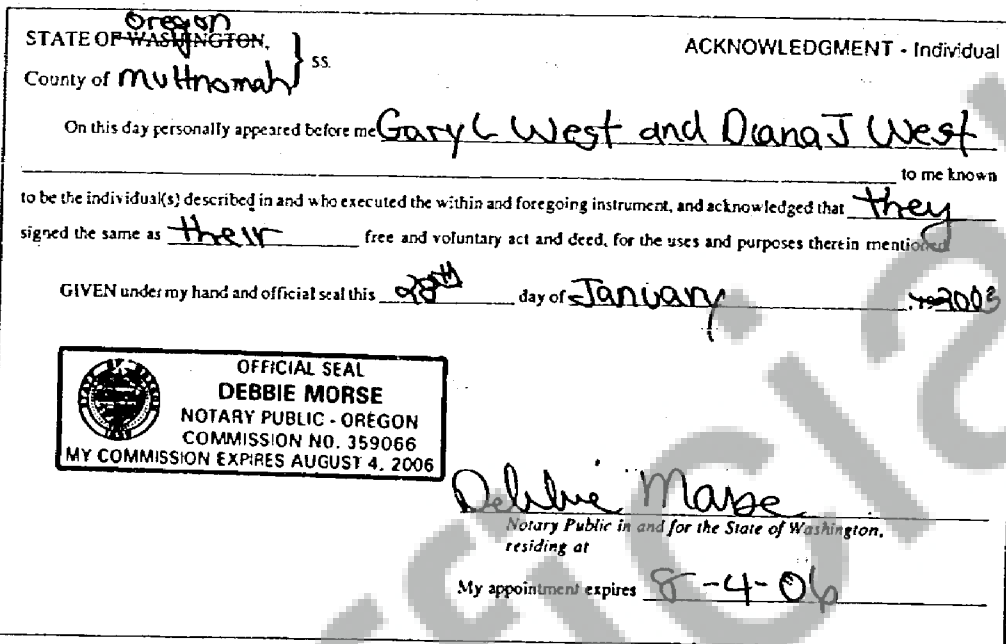 Oregon
STATE OF WASHINGTON, ACKNOWLEDGMENT - Individual
ss.
County of Multnomah
On this day personally appeared before me Gary L West and Diana J West
to me known
to be the individual(s) described in and who executed the within and foregoing instrument, and acknowledged that they
signed the same as their free and voluntary act and deed, for the uses and purposes therein mentioned.
GIVEN under my hand and official seal this 28th day of January 2003
OFFICIAL SEAL
DEBBIE MORSE
NOTARY PUBLIC - OREGON
COMMISSION NO. 359066
MY COMMISSION EXPIRES AUGUST 4, 2006
Debbie Morse
Notary Public in and for the State of Washington,
residing at
My appointment expires 8-4-06